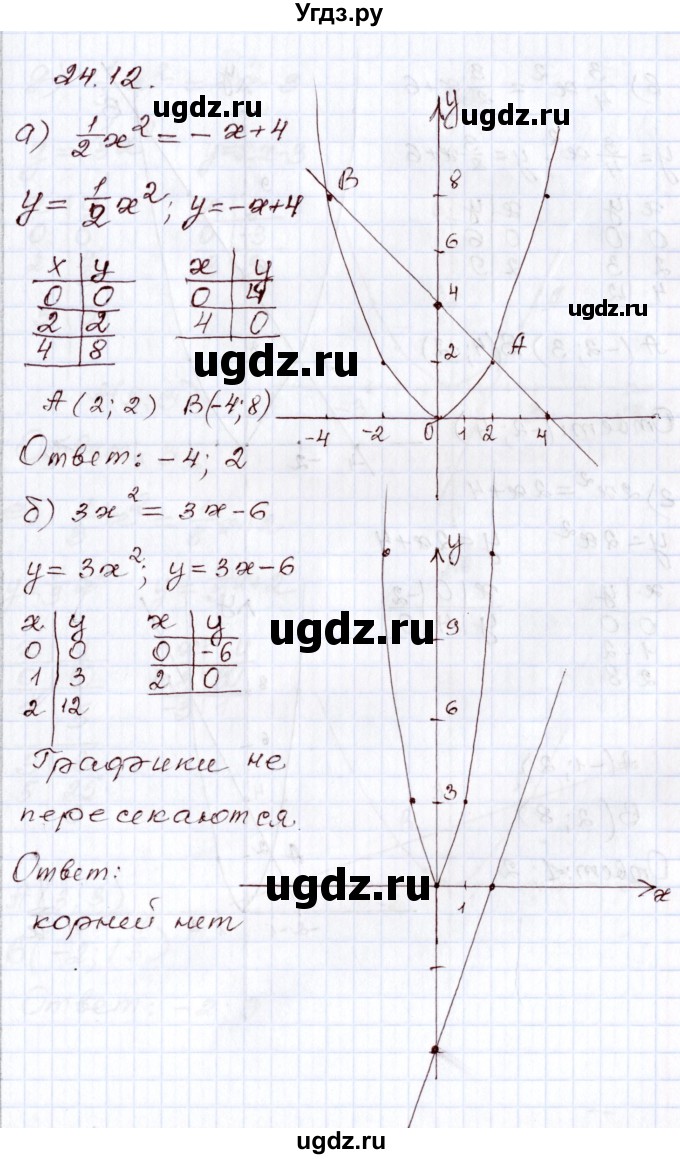 Угдз.ру
24.12.
ugdz.ru
ugdz.ru
а) 1/2 x² = -x+4
y = 1/2 x²; y=-x+4
x | y
0 | 0
2 | 2
4 | 8
x | y
0 | 4
4 | 0
ugdz.ru
ugdz.ru
A(2; 2) B(-4; 8)
Ответ: -4; 2
y
8
6
4
2
B
A
-4 -2 0 1 2 4
б) 3x² = 3x-6
y = 3x²; y = 3x-6
x | y
0 | 0
1 | 3
2 | 12
x | y
0 | -6
2 | 0
ugdz.ru
Графики не
пересекаются.
Ответ:
корней нет
y
9
6
3
1
x
ugdz.ru
ugdz.ru
ugdz.ru